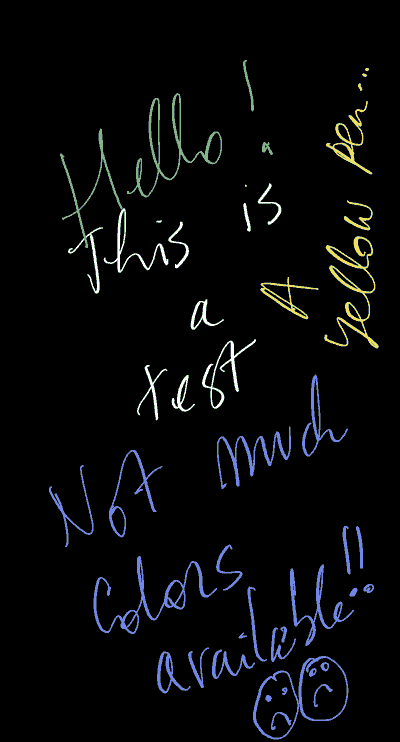 Hello!
This is
a
test
A
yellow pen...
Not much
colors
available!!